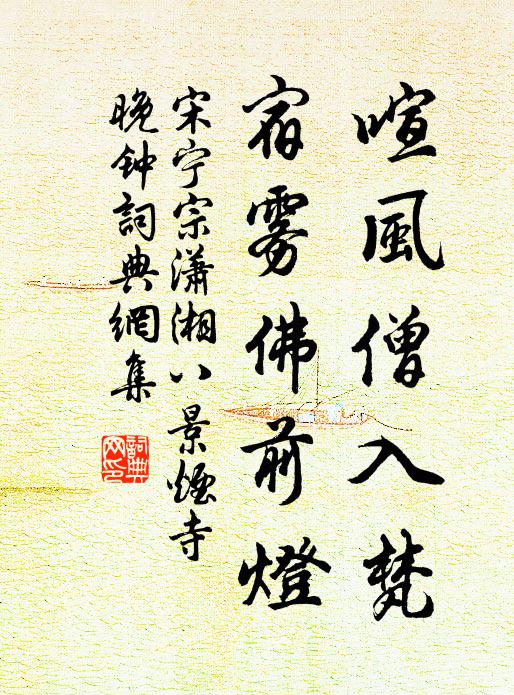 喧風僧入梵
宿雾佛前燈
宋宁宗瀟湘八景煙寺
晚钟詞典網集
詞典
网印